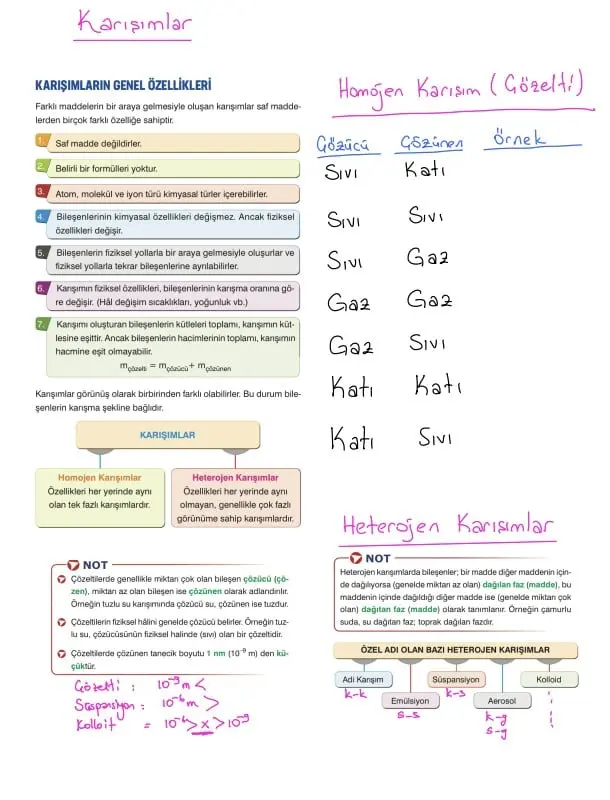 Karışımlar
KARIŞIMLARIN GENEL ÖZELLİKLERİ
Farklı maddelerin bir araya gelmesiyle oluşan karışımlar saf madde-
lerden birçok farklı özelliğe sahiptir.
1. Saf madde değildirler.
2. Belirli bir formülleri yoktur.
3. Atom, molekül ve iyon türü kimyasal türler içerebilirler.
4. Bileşenlerinin kimyasal özellikleri değişmez. Ancak fiziksel
özellikleri değişir.
5. Bileşenlerin fiziksel yollarla bir araya gelmesiyle oluşurlar ve
fiziksel yollarla tekrar bileşenlerine ayrılabilirler.
6. Karışımın fiziksel özellikleri, bileşenlerinin karışma oranına gö-
re değişir. (Hâl değişim sıcaklıkları, yoğunluk vb.)
7. Karışımı oluşturan bileşenlerin kütleleri toplamı, karışımın küt-
lesine eşittir. Ancak bileşenlerin hacimlerinin toplamı, karışımın
hacmine eşit olmayabilir.
mçözelti = mçözücü + mçözünen
Karışımlar görünüş olarak birbirinden farklı olabilirler. Bu durum bile-
şenlerin karışma şekline bağlıdır.
KARIŞIMLAR
Homojen Karışımlar
Özellikleri her yerinde aynı
olan tek fazlı karışımlardır.
Heterojen Karışımlar
Özellikleri her yerinde aynı
olmayan, genellikle çok fazlı
görünüme sahip karışımlardır.
NOT
Çözeltilerde genellikle miktarı çok olan bileşen çözücü (çö-
zen), miktarı az olan bileşen ise çözünen olarak adlandırılır.
Örneğin tuzlu su karışımında çözücü su, çözünen ise tuzdur.
Çözeltilerin fiziksel hâlini genelde çözücü belirler. Örneğin tuz-
lu su, çözücüsünün fiziksel halinde (sıvı) olan bir çözeltidir.
Çözeltilerde çözünen tanecik boyutu 1 nm (10⁻⁹ m) den kü-
çüktür.
Çözelti : 10⁻⁹m <
Süspansiyon : 10⁻⁶m >
Kolloit = 10⁻⁶ > x > 10⁻⁹
Homojen Karışım (Çözelti)
Çözücü Çözünen Örnek
Sıvı Katı
Sıvı Sıvı
Sıvı Gaz
Gaz Gaz
Gaz Sıvı
Katı Katı
Katı Sıvı
Heterojen Karışımlar
NOT
Heterojen karışımlarda bileşenler; bir madde diğer maddenin için-
de dağılıyorsa (genelde miktarı az olan) dağılan faz (madde), bu
maddenin içinde dağıldığı diğer madde ise (genelde miktarı çok
olan) dağıtan faz (madde) olarak tanımlanır. Örneğin çamurlu
suda, su dağıtan faz; toprak dağılan fazdır.
ÖZEL ADI OLAN BAZI HETEROJEN KARIŞIMLAR
Adi Karışım Süspansiyon Kolloid
k-k k-s
Emülsiyon Aerosol
s-s k-g
s-g